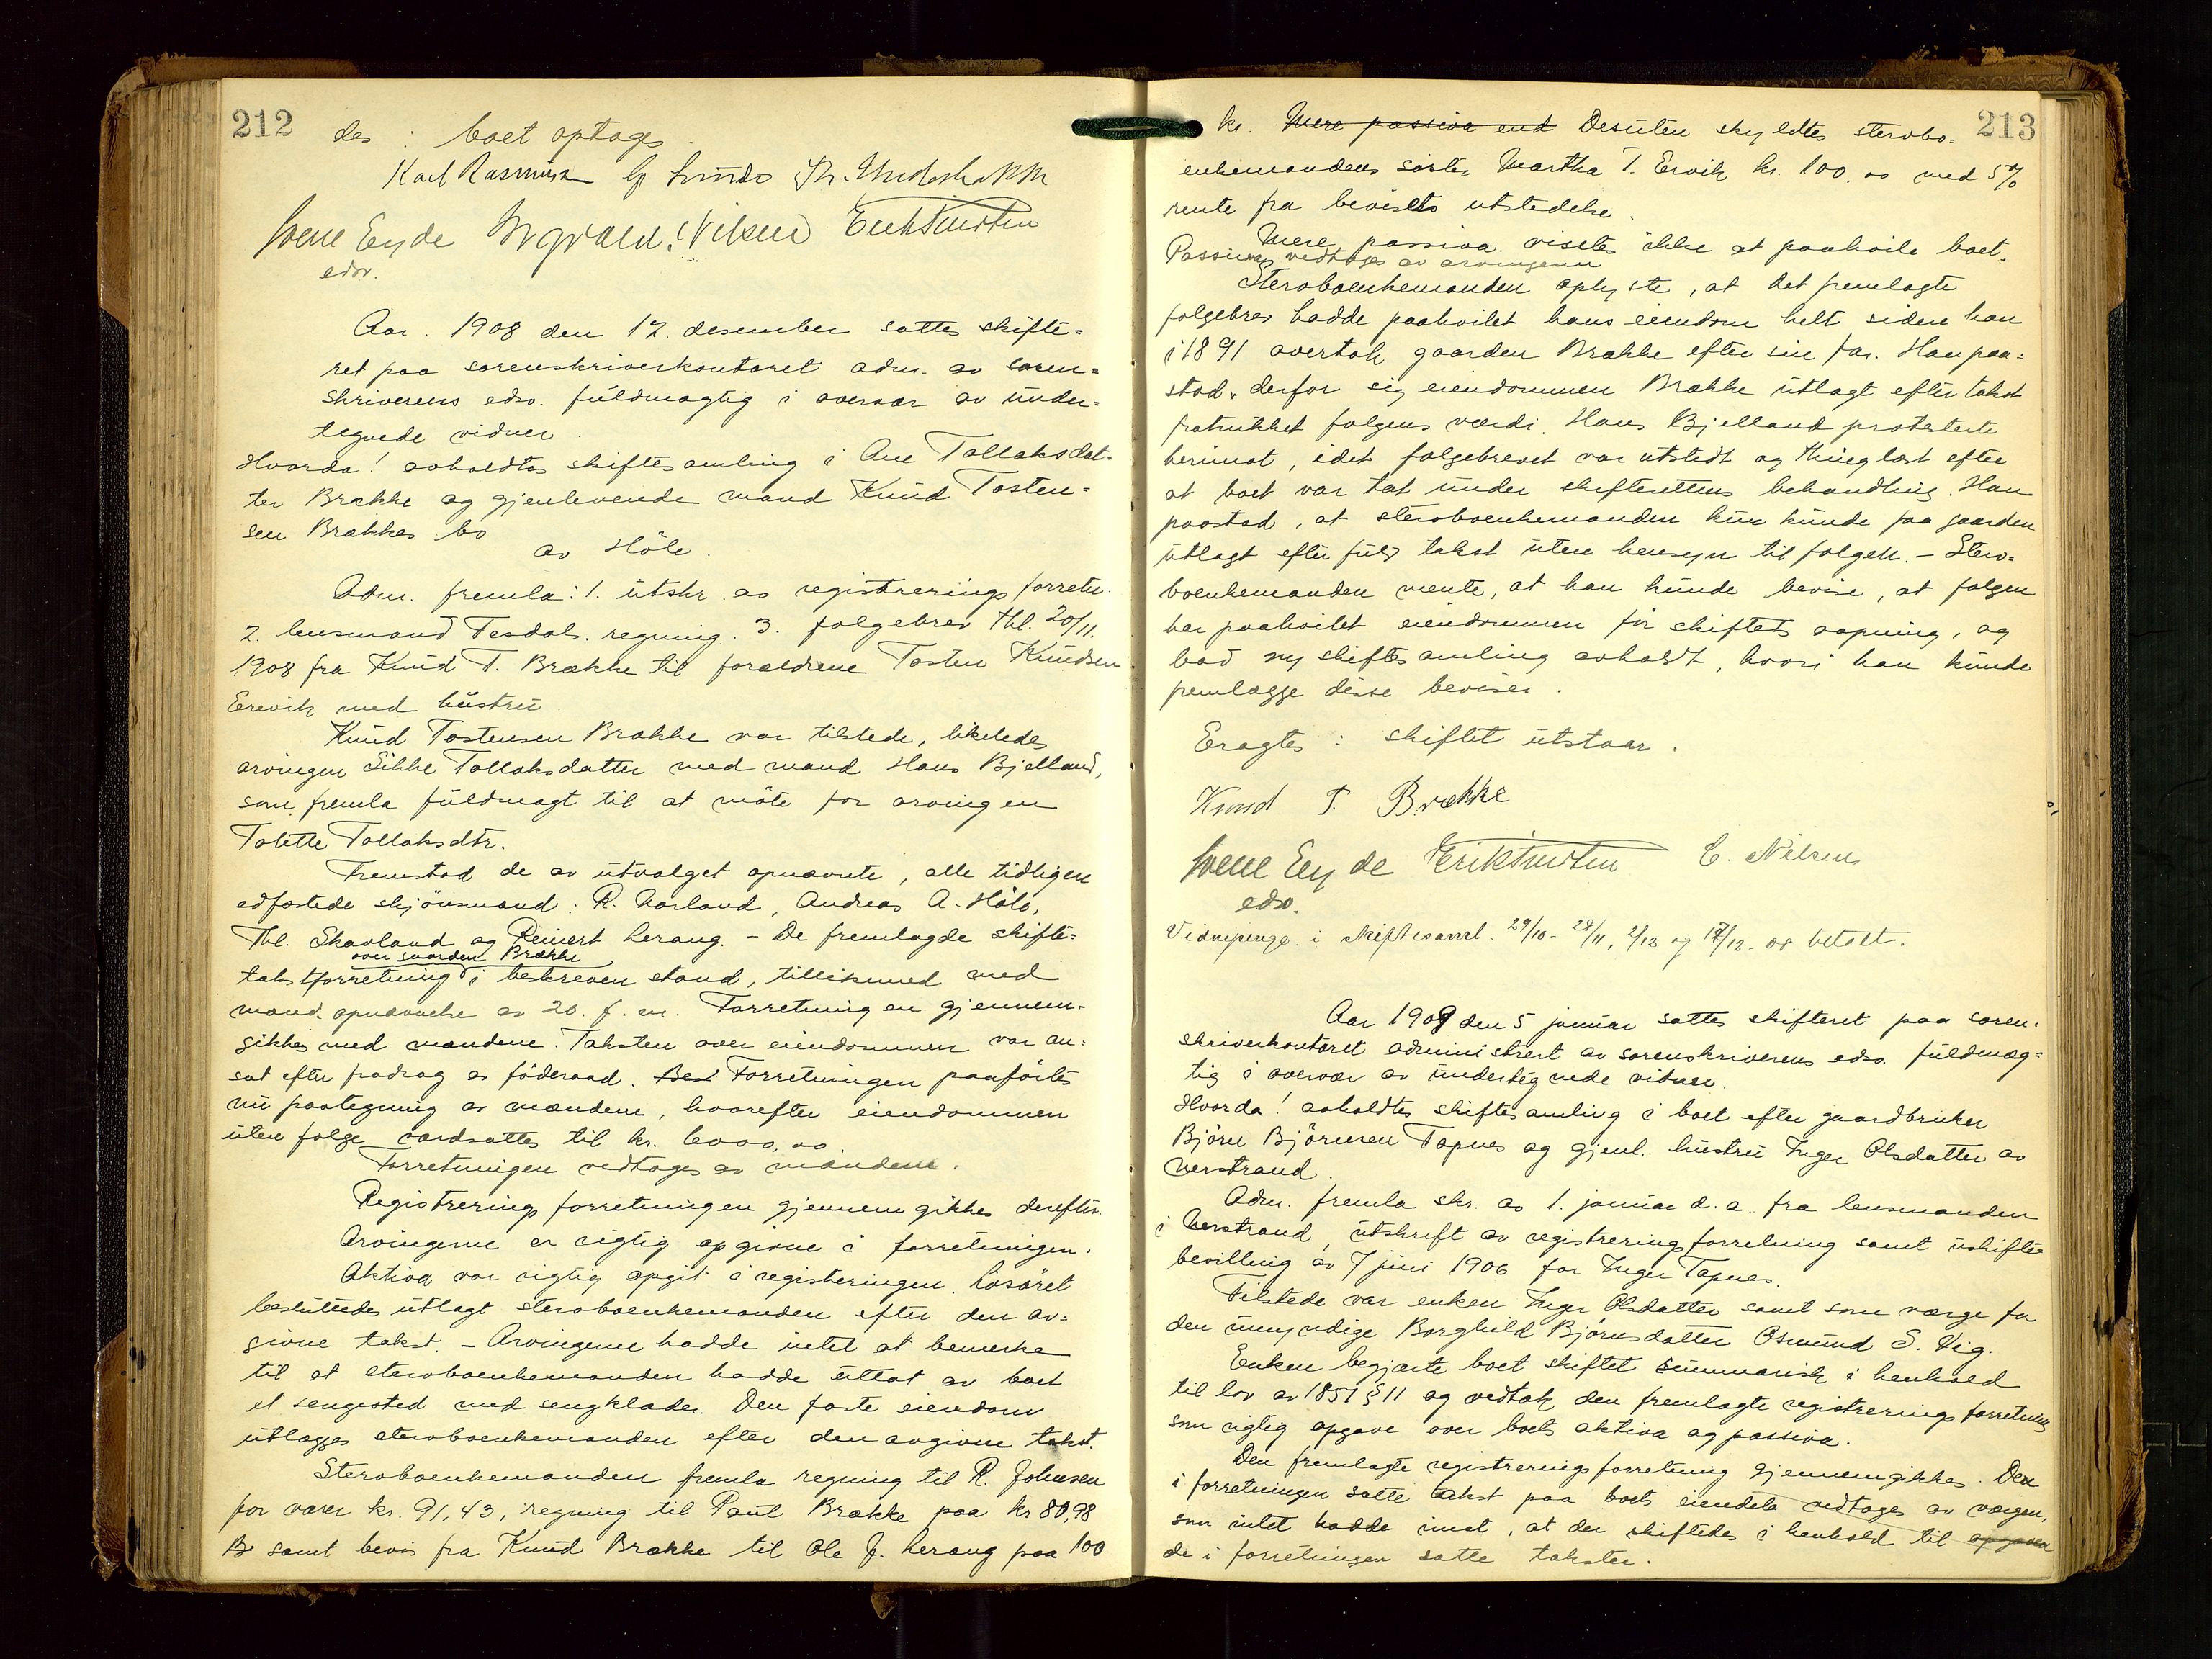 212
des : boet optages.
Karl Rasmussen
Svene Eyde Ingvald Nilsen Erik Tursten
edsv.
Aar 1908 den 17. desember sattes skifte-
ret paa sorenskriverkontoret adm. av soren-
skriverens edsv. fuldmægtig i overvær av under-
tegnede vidner.
Hvorda! avholdtes skiftesamling i Ane Tollaksdat-
ter Brække og gjenlevende mand Knud Tosten-
sen Brækkes bo
av Höle.
Adm. fremla: 1. utskr. av registreringsforretn.
2. lensmand Tesdals regning. 3. følgebrev thl. 20/11.
1908 fra Knud T. Brække til forældrene Tosten Knudsen
Erevik med hustru.
Knud Tostensen Brække var tilstede, likeledes
arvingen Sikke Tollaksdatter med mand Hans Bjelland,
som fremla fuldmagt til at möte for arvingen
Tolette Tollaksdtr.
Fremstod de av utvalget opnævnte, alle tidligere
edfæstede skjönsmænd: R. Aarland, Andreas A. Höle,
Thl. Skavland og Reinert Lerang. - De fremlagde skifte-
over gaarden Brække
takstforretning i beskreven stand, tillikemed med
mænd. opnævnelse av 20. f. m. Forretningen gjennem-
gikkes med mændene. Taksten over eiendommen var an-
sat efter fradrag av föderaad. Best Forretningen paaförtes
nu paategning av mændene, hvorefter eiendommen
uten følge værdsattes til kr. 6000,00
Forretningen vedtages av mændene.
Registreringsforretningen gjennemgikkes derefter.
Arvingerne er rigtig opgivne i forretningen.
Aktiva var rigtig opgit i registreringen. Lösöret
besluttedes utlagt stervboenkemanden efter den av-
givne takst. - Arvingerne hadde intet at bemerke
til at stervboenkemanden hadde uttat av boet
et sengested med sengklæder. Den faste eiendom
utlægges stervboenkemanden efter den avgivne takst.
Stervboenkemanden fremla regning til R. Johnsen
for varer kr. 91,43, regning til Paul Brække paa kr 80,98
samt bevis fra Knud Brække til Ole J. Lerang paa 100
213
kr. Mere passiva end Desuten skyldtes stervbo-
enkemandens söster Martha T. Ervik kr. 100,00 med 5%
rente fra bevisets utstedelse.
Mere passiva vistes ikke at paahvile boet.
Passiva vedtages av arvingerne
Stervboenkemanden oplyste, at det fremlagte
følgebrev hadde paahvilet hans eiendom helt siden han
i 1891 overtok gaarden Brække efter sin far. Han paa-
stod derfor sig eiendommen Brække utlagt efter takst
fratrukket følgens værdi. Hans Bjelland protesterte
herimot, idet følgebrevet var utstedt og thinglæst efter
at boet var tat under skifterettens behandling. Han
paastod, at stervboenkemanden kun kunde faa gaarden
utlagt efter fuld takst uten hensyn til følgen. - Sterv-
boenkemanden mente, at han kunde bevise, at følgen
har paahvilet eiendommen för skiftets aapning, og
bad ny skiftesamling avholdt, hvori han kunde
fremlægge disse beviser.
Eragtes : skiftet utstaar.
Knud T. Brække
Svene Eyde Erik Tursten C. Nilsen
edsv.
Vidnepenge i skiftesaml. 29/10 - 28/11, 2/12 og 17/12 - 08 betalt.
Aar 1909 den 5 januar sattes skifteret paa soren-
skriverkontoret administrert av sorenskriverens edsv. fuldmæg-
tig i overvær av undertegnede vidner.
Hvorda! avholdtes skiftesamling i boet efter gaardbruker
Björn Björnsen Tapnes og gjenl. hustru Inger Olsdatter av
Nerstrand.
Adm. fremla skr. av 1. januar d. a. fra lensmanden
i Nerstrand, utskrift av registreringsforretning samt uskifte-
bevilling av 7 juni 1906 for Inger Tapnes.
Tilstede var enken Inger Olsdatter samt som værge for
den umyndige Borghild Björnsdatter Osmund S. Vig.
Enken begjærte boet skiftet summarisk i henhold
til lov av 1851 § 11 og vedtok den fremlagte registreringsforretning
som rigtig opgave over boets aktiva og passiva.
Den fremlagte registreringsforretning gjennemgikkes. Den
i forretningen satte takst paa boets eiendele vedtages av værgen,
som intet hadde imot, at der skiftedes i henhold til opgaven
de i forretningen satte takster.